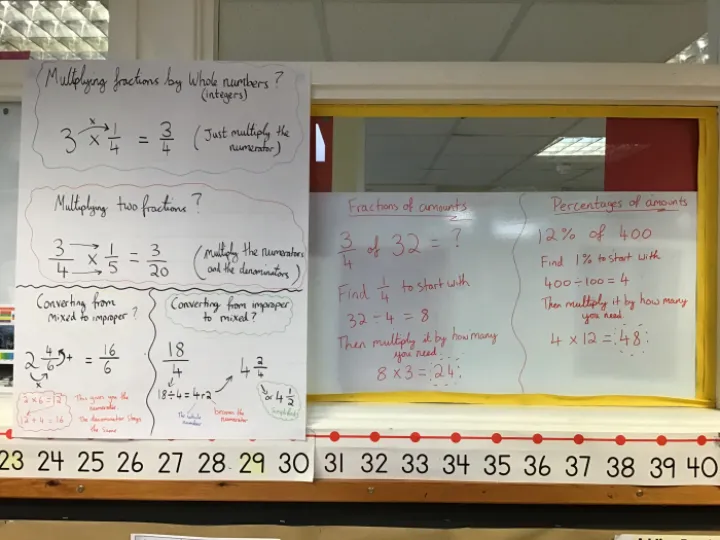 Multiplying fractions by whole numbers?
(integers)
3 x 1/4 = 3/4 (Just multiply the
numerator)
x
Multiplying two fractions?
3/4 x 1/5 = 3/20 (multiply the numerators
and the denominators)
Converting from
mixed to improper?
2 4/6 = 16/6
+
x
2 x 6 = 12
12 + 4 = 16
This gives you the
numerator
The denominator stays
the same
Converting from improper
to mixed?
18/4
4 2/4
18 ÷ 4 = 4 r 2
or 4 1/2
Simplified
The whole
number
becomes the
numerator
Fractions of amounts
3/4 of 32 = ?
Find 1/4 to start with
32 ÷ 4 = 8
Then multiply it by how many
you need
8 x 3 = 24
Percentages of amounts
12% of 400
Find 1% to start with
400 ÷ 100 = 4
Then multiply it by how many
you need
4 x 12 = 48
23 24 25 26 27 28 29 30 31 32 33 34 35 36 37 38 39 40